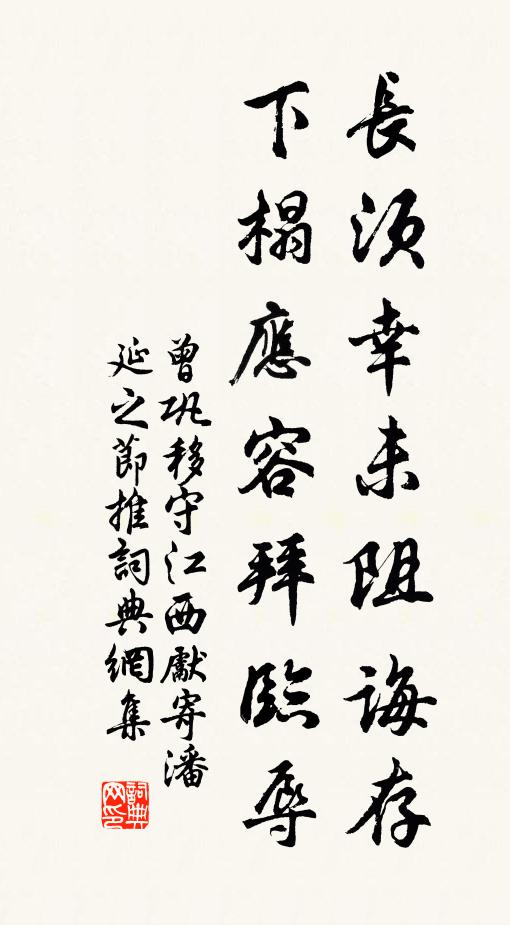 長須幸未阻誨存
下榻應容拜臨辱
曾巩移守江西獻寄潘
延之節推詞典網集
詞典
网印